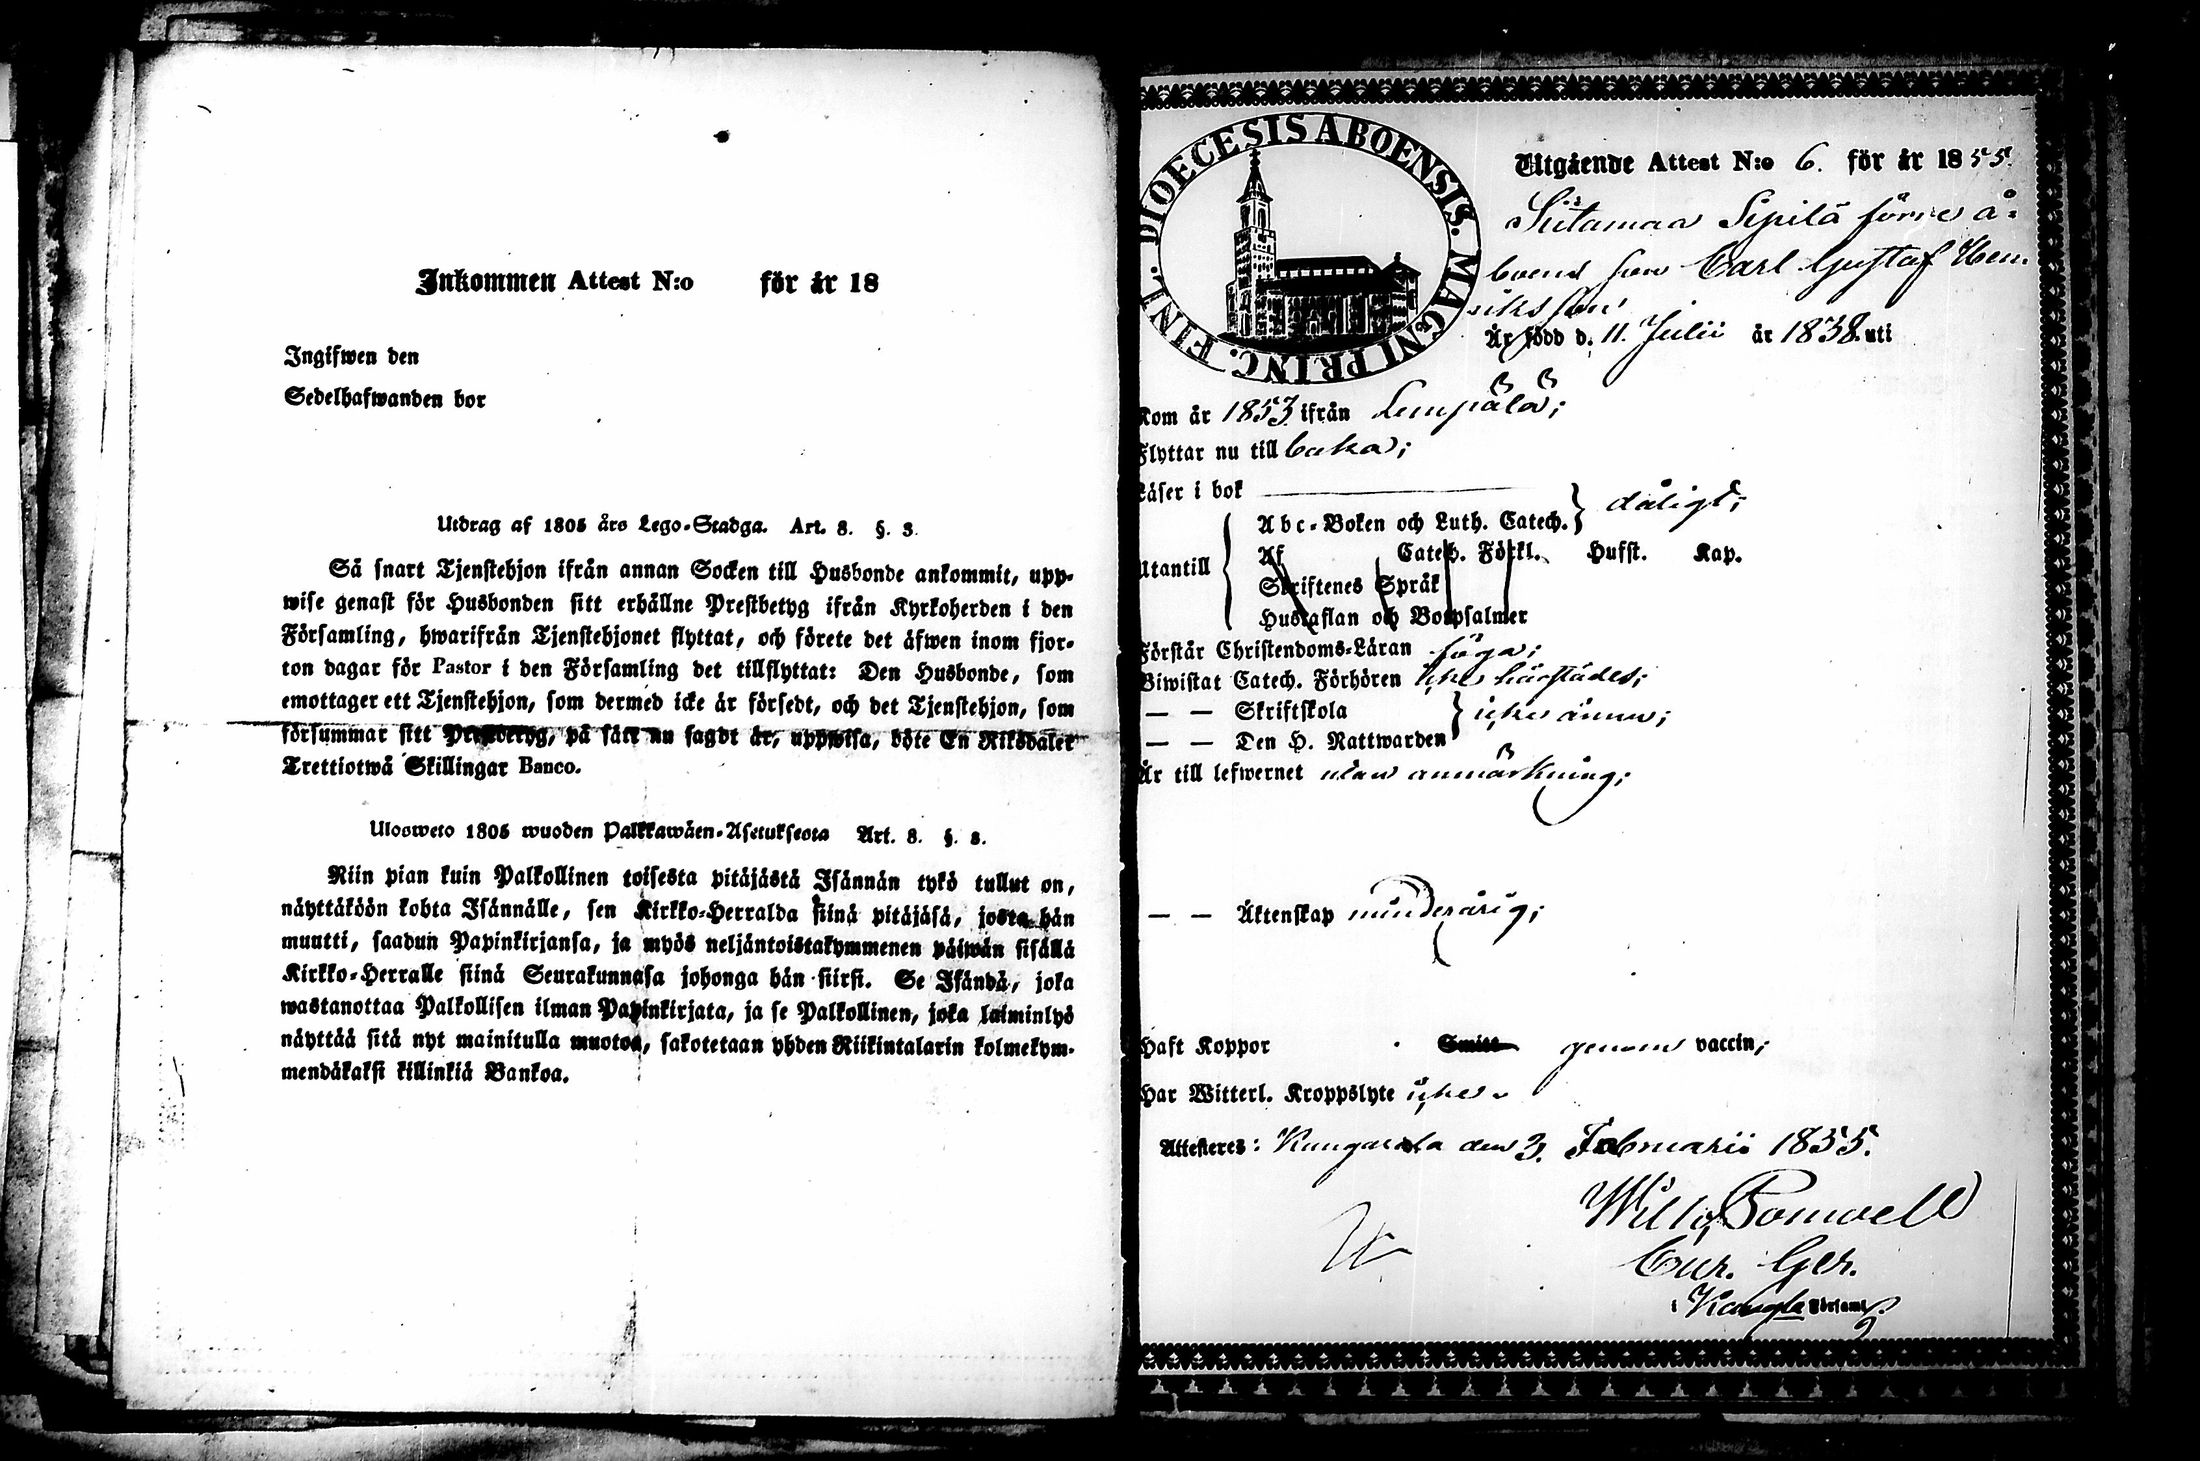 Inkommen Attest N:o för år 18
Ingifwen den
Sedelhafwanden bor
Utdrag af 1805 års Lego-Stadga. Art. 8. §. 3.
Så snart Tjenstehjon ifrån annan Socken till Husbonde ankommit, upp-
wise genast för Husbonden sitt erhållne Prestbetyg ifrån Kyrkoherden i den
Församling, hwarifrån Tjenstehjonet flyttat, och förete det äfwen inom fjor-
ton dagar för Pastor i den Församling det tillflyttat: Den Husbonde, som
emottager ett Tjenstehjon, som dermed icke är försedt, och det Tjenstehjon, som
försummar sitt Prestbetyg, på sätt nu sagdt är, uppwisa, böte En Riksdaler
Trettiotwå Skillingar Banco.
Ulosweto 1805 wuoden Palkkawäen-Asetuksesta Art. 8. §. 3.
Niin pian kuin Palkollinen toisesta pitäjästä Isännän tykö tullut on,
näyttäköön kohta Isännälle, sen Kirkko-Herralda siinä pitäjäsä, josta hän
muutti, saadun Papinkirjansa, ja myös neljäntoistakymmenen päiwän sisällä
Kirkko-Herralle siinä Seurakunnasa johonga hän siirsi. Se Isändä, joka
wastanottaa Palkollisen ilman Papinkirjata, ja se Palkollinen, joka laiminlyö
näyttää sitä nyt mainitulla muotoa, sakotetaan yhden Riikintalarin kolmekym-
mendäkaksi killinkiä Bankoa.
DIOECESIS ABOENSIS. MAGNI PRINC. FINL.
Utgående Attest N:o 6. för år 1855.
Siitamaa Sipilä förre å-
boens son Carl Gustaf Hen-
riksson
Är född d. 11. Julii år 1838. uti
Kom år 1853 ifrån Lempälä;
Flyttar nu till baka;
Läser i bok
dåligt;
Abc-Boken och Luth. Catech.
Utantill
Af Catech. Förkl. Hufst. Kap.
Skriftenes Språk
Hustaflan och Botpsalmer
Förstår Christendoms-Läran föga;
Biwistat Catech. Förhören icke härstädes;
— — Skriftskola
icke ännu;
— — Den H. Nattwarden
Är till lefwernet utan anmärkning;
— — Äktenskap minderårig;
Haft Koppor Smitt genom vaccin;
Har Witterl. Kroppslyte icke.
Attesteres: Kangasala den 3. Februarii 1855.
Cur. Ger.
i Kangla Församl.